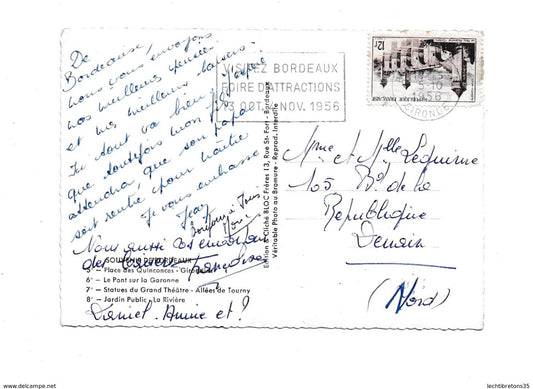 De
Bordeaux,
nous vous envoyons
nos meilleures pensées
et nos meilleurs baisers.
Tu dois va bien. J'espère
que toutefois mon
attendra, que son papa
soit rentré pour naître
Je vous embrasse
Jean
Bonjour à Tous
Nous aussi
des
Daniel. Annie et ?
VISITEZ BORDEAUX
FOIRE D'ATTRACTIONS
13 OCT. NOV. 1956
12F
REPUBLIQUE FRANÇAISE
1956
GIRONDE
Mme et Mlle Lequime
105 Bd de la
République
Denain
(Nord)
SOUVENIR DE BORDEAUX
5° — Place des Quinconces - Girondins
6° — Le Pont sur la Garonne
7° — Statues du Grand Théâtre - Allées de Tourny
8° — Jardin Public - La Rivière
Edition et Cliché BLOC Frères 13, Rue St-Fort - Bordeaux
Véritable Photo au Bromure - Reprod. Interdite
https://www.delcampe.net
lechtibretons35